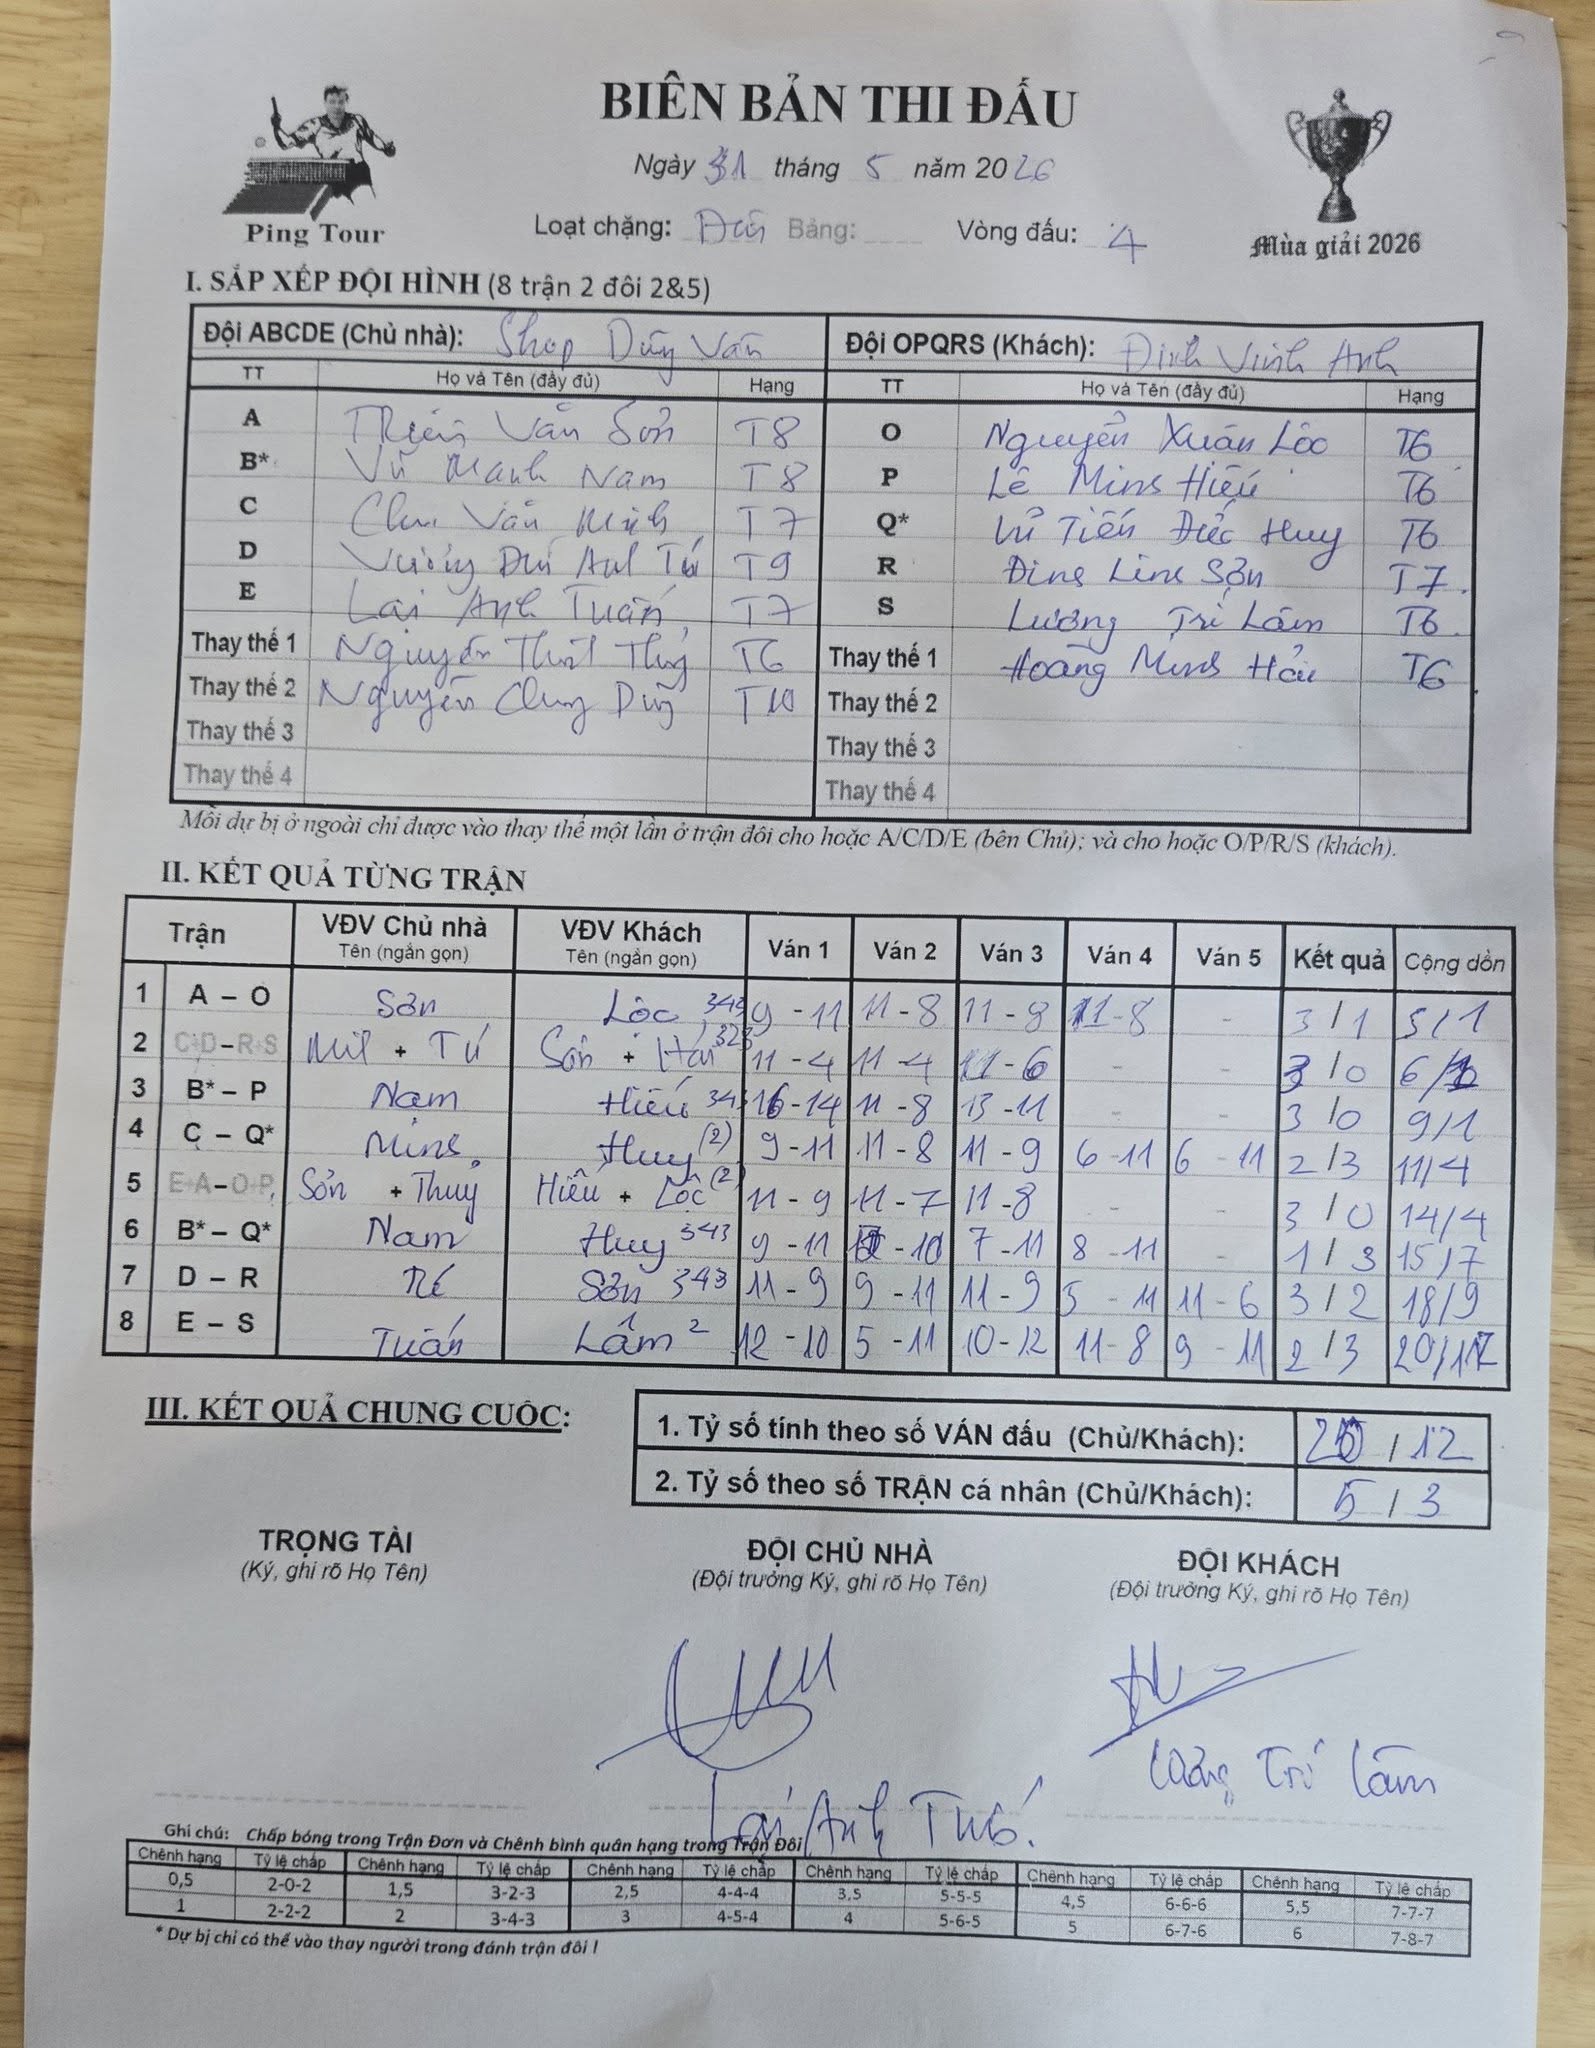 BIÊN BẢN THI ĐẤU
Ngày 31 tháng 5 năm 2026
Ping Tour
Loạt chặng: Bảng: Vòng đấu: 4
Mùa giải 2026
I. SẮP XẾP ĐỘI HÌNH (8 trận 2 đôi 2&5)
Đội ABCDE (Chủ nhà): Shop Dũng Vân Đội OPQRS (Khách): Đinh Vinh Anh
TT Họ và Tên (đầy đủ) Hạng TT Họ và Tên (đầy đủ) Hạng
A Văn Sơn T8 O Nguyễn Xuân Lộc T6
B* Vũ Mạnh Nam T8 P Lê Minh Hiếu T6
C Chu Văn Minh T7 Q* Vũ Tiến Đức Huy T6
D Anh Tú T9 R Đinh Linh Sơn T7
E Lại Anh Tuấn T7 S Lương Trí Lâm T6
Thay thế 1 Nguyễn T6 Thay thế 1 Hoàng Minh Hải T6
Thay thế 2 Nguyễn T10 Thay thế 2
Thay thế 3 Thay thế 3
Thay thế 4 Thay thế 4
Mỗi dự bị ở ngoài chỉ được vào thay thế một lần ở trận đôi cho hoặc A/C/D/E (bên Chủ); và cho hoặc O/P/R/S (khách).
II. KẾT QUẢ TỪNG TRẬN
Trận VĐV Chủ nhà VĐV Khách Ván 1 Ván 2 Ván 3 Ván 4 Ván 5 Kết quả Cộng dồn
Tên (ngắn gọn) Tên (ngắn gọn)
1 A – O Sơn Lộc 343 9 - 11 11 - 8 11 - 8 11 - 8 - 3 / 1 3/1
2 C+D – R+S + Tú Sơn + Hải 323 11 - 4 11 - 4 11 - 6 - - 3 / 0 6/1
3 B* – P Nam Hiếu 343 16 - 14 11 - 8 13 - 11 - - 3 / 0 9/1
4 C – Q* Minh Huy (2) 9 - 11 11 - 8 11 - 9 6 - 11 6 - 11 2 / 3 11/4
5 E+A – O+P Sơn + Thuỷ Hiếu + Lộc (2) 11 - 9 11 - 7 11 - 8 - - 3 / 0 14/4
6 B* – Q* Nam Huy 343 9 - 11 - 10 7 - 11 8 - 11 - 1 / 3 15/7
7 D – R Tú Sơn 343 11 - 9 9 - 11 11 - 9 5 - 11 11 - 6 3 / 2 18/9
8 E – S Tuấn Lâm 2 12 - 10 5 - 11 10 - 12 11 - 8 9 - 11 2 / 3 20/12
III. KẾT QUẢ CHUNG CUỘC:
1. Tỷ số tính theo số VÁN đấu (Chủ/Khách): 20 / 12
2. Tỷ số theo số TRẬN cá nhân (Chủ/Khách): 5 / 3
TRỌNG TÀI ĐỘI CHỦ NHÀ ĐỘI KHÁCH
(Ký, ghi rõ Họ Tên) (Đội trưởng Ký, ghi rõ Họ Tên) (Đội trưởng Ký, ghi rõ Họ Tên)
Lương Trí Lâm
Lại Anh Tuấn
Ghi chú: Chấp bóng trong Trận Đơn và Chênh bình quân hạng trong Trận Đôi
Chênh hạng Tỷ lệ chấp Chênh hạng Tỷ lệ chấp Chênh hạng Tỷ lệ chấp Chênh hạng Tỷ lệ chấp Chênh hạng Tỷ lệ chấp Chênh hạng Tỷ lệ chấp
0,5 2-0-2 1,5 3-2-3 2,5 4-4-4 3,5 5-5-5 4,5 6-6-6 5,5 7-7-7
1 2-2-2 2 3-4-3 3 4-5-4 4 5-6-5 5 6-7-6 6 7-8-7
* Dự bị chỉ có thể vào thay người trong đánh trận đôi !